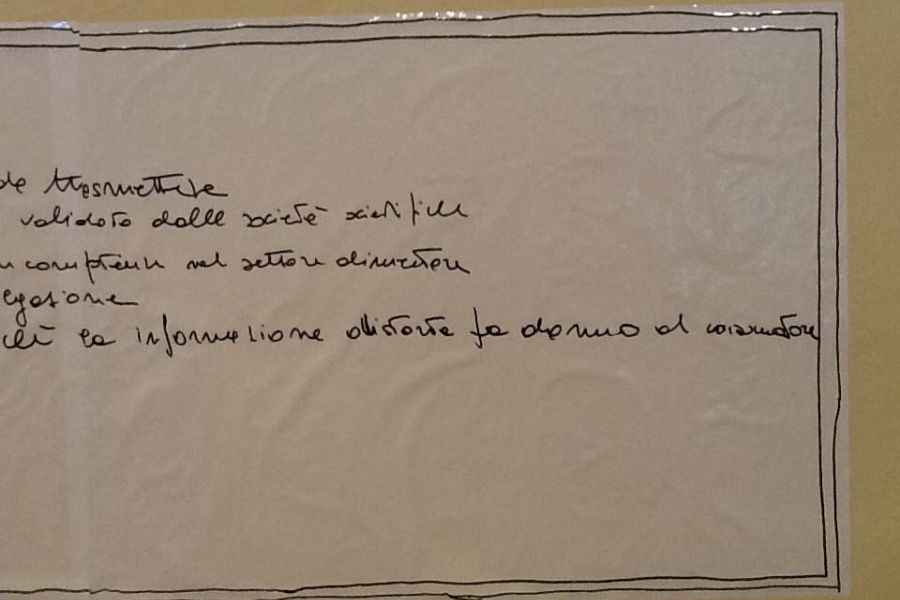 de trasmettere
validato dalle società scientifiche
nel settore alimentare
la informazione distorta fa danno al consumatore